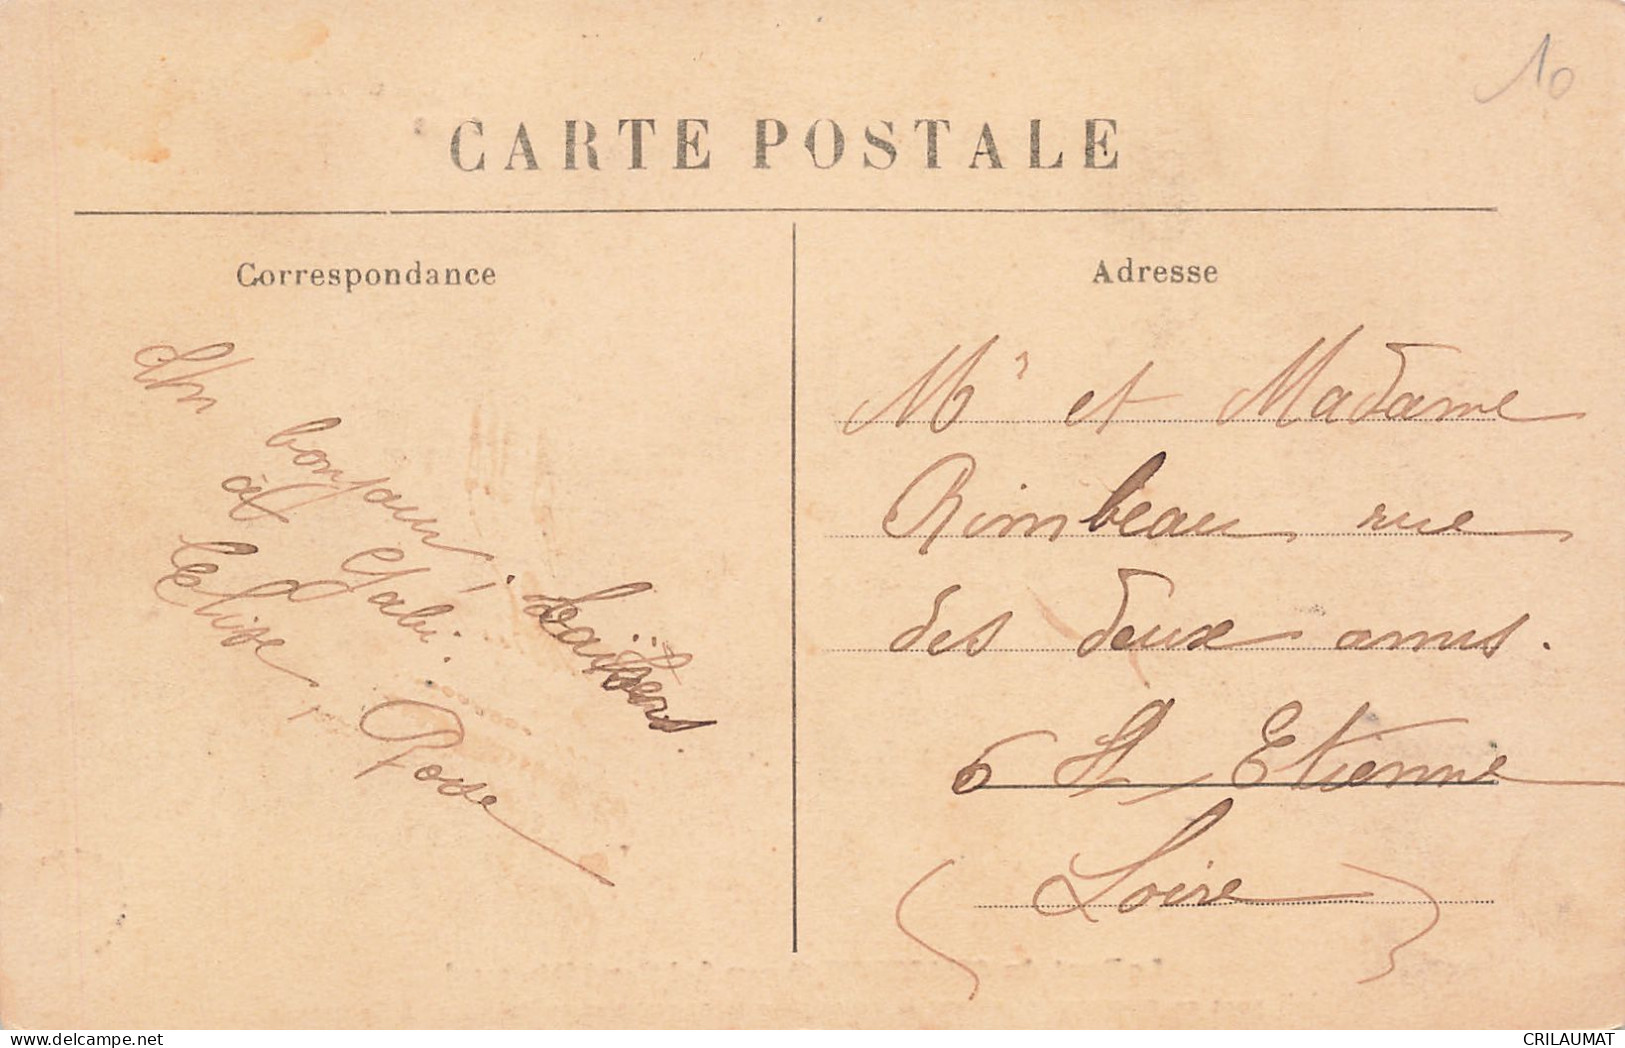 10
CARTE POSTALE
Correspondance
Un
bonjour, baisers.
à Gabi.
Elise,
Rose
Adresse
Mr et Madame
Rimbeau rue
des deux amis.
6 St Etienne
(Loire)
delcampe.net
CRILAUMAT